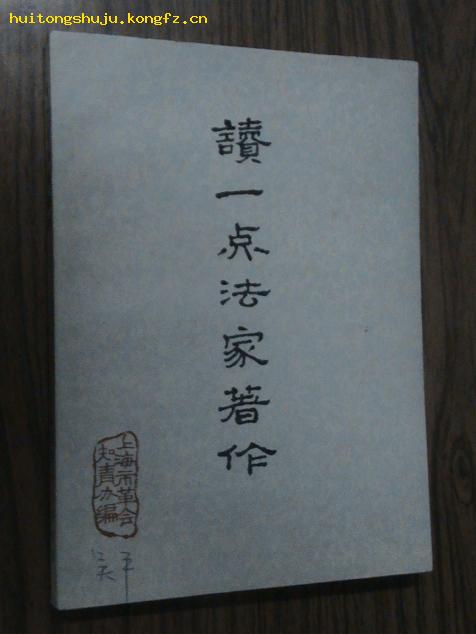 huitongshuju.kongfz.cn
讀一点法家著作
上海市革会
知青办编
huitongshuju.kongfz.cn